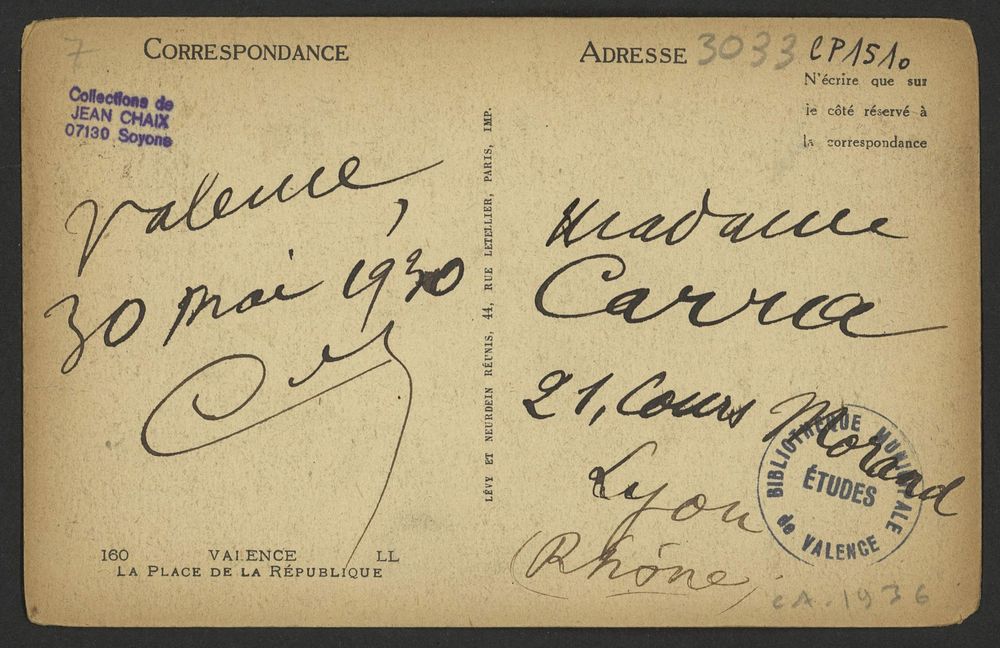 7
CORRESPONDANCE
Collections de
JEAN CHAIX
07130 Soyons
Valence,
30 mai 1930
160 VALENCE LL
LA PLACE DE LA RÉPUBLIQUE
LÉVY ET NEURDEIN RÉUNIS, 44, RUE LETELLIER, PARIS, IMP.
ADRESSE
3033
CP1510
N'écrire que sur
le côté réservé à
la correspondance
Madame
Carra
21, Cours Morand
Lyon
(Rhône)
BIBLIOTHEQUE MUNICIPALE
ÉTUDES
de VALENCE
CA.1936